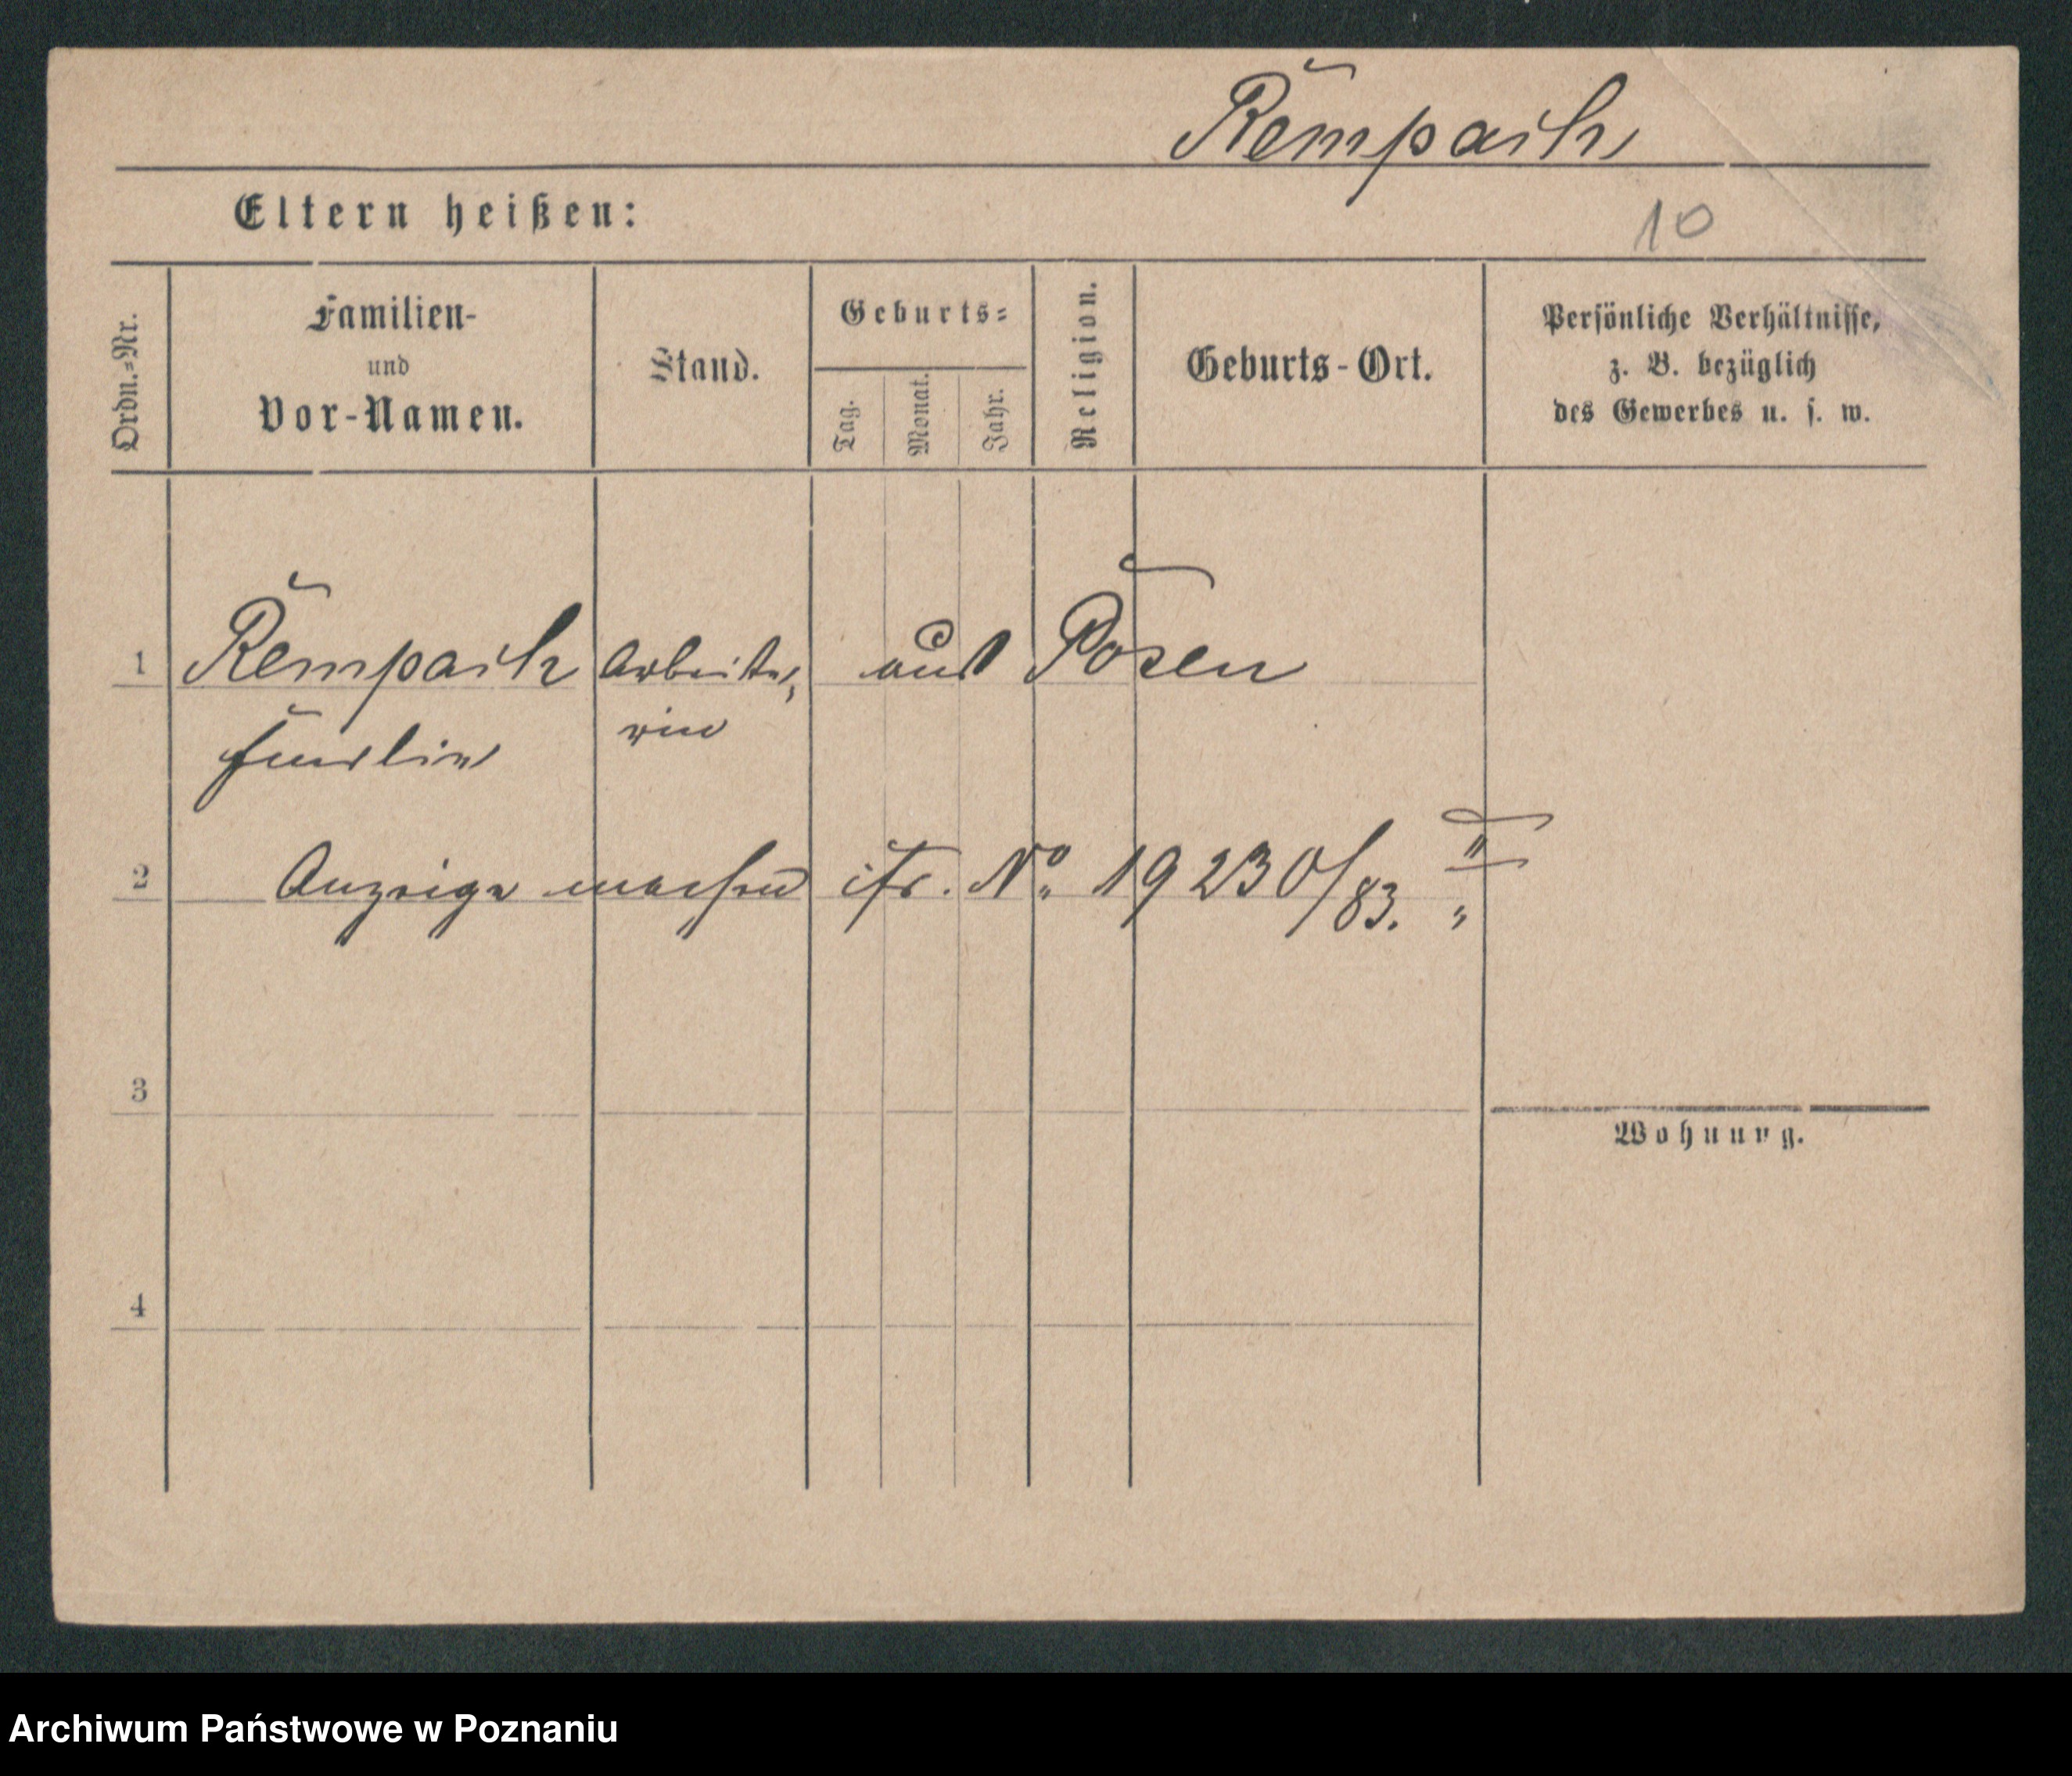 Rempaih
Eltern heißen:
10
Ordn.=Nr.
Familien-
und
Vor-Namen.
Stand.
Geburts=
Tag.
Monat.
Jahr.
Religion.
Geburts-Ort.
Persönliche Verhältnisse,
z. B. bezüglich
des Gewerbes u. s. w.
1 Rempaih Arbeite, aus Posen
rin
2 Anzeige machen No. 19230/83. II
3
Wohnung.
4
Archiwum Państwowe w Poznaniu